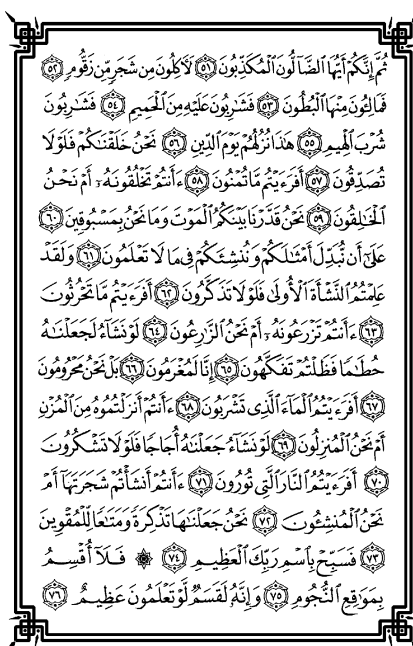 ثُمَّ إِنَّكُمْ أَيُّهَا ٱلضَّآلُّونَ ٱلْمُكَذِّبُونَ ٥١ لَأٓكِلُونَ مِن شَجَرٍ مِّن زَقُّومٍ ٥٢
فَمَالِـُٔونَ مِنْهَا ٱلْبُطُونَ ٥٣ فَشَٰرِبُونَ عَلَيْهِ مِنَ ٱلْحَمِيمِ ٥٤ فَشَٰرِبُونَ
شُرْبَ ٱلْهِيمِ ٥٥ هَٰذَا نُزُلُهُمْ يَوْمَ ٱلدِّينِ ٥٦ نَحْنُ خَلَقْنَٰكُمْ فَلَوْلَا
تُصَدِّقُونَ ٥٧ أَفَرَءَيْتُم مَّا تُمْنُونَ ٥٨ ءَأَنتُمْ تَخْلُقُونَهُۥٓ أَمْ نَحْنُ
ٱلْخَٰلِقُونَ ٥٩ نَحْنُ قَدَّرْنَا بَيْنَكُمُ ٱلْمَوْتَ وَمَا نَحْنُ بِمَسْبُوقِينَ ٦٠
عَلَىٰٓ أَن نُّبَدِّلَ أَمْثَٰلَكُمْ وَنُنشِئَكُمْ فِى مَا لَا تَعْلَمُونَ ٦١ وَلَقَدْ
عَلِمْتُمُ ٱلنَّشْأَةَ ٱلْأُولَىٰ فَلَوْلَا تَذَكَّرُونَ ٦٢ أَفَرَءَيْتُم مَّا تَحْرُثُونَ
٦٣ ءَأَنتُمْ تَزْرَعُونَهُۥٓ أَمْ نَحْنُ ٱلزَّٰرِعُونَ ٦٤ لَوْ نَشَآءُ لَجَعَلْنَٰهُ
حُطَٰمًا فَظَلْتُمْ تَفَكَّهُونَ ٦٥ إِنَّا لَمُغْرَمُونَ ٦٦ بَلْ نَحْنُ مَحْرُومُونَ
٦٧ أَفَرَءَيْتُمُ ٱلْمَآءَ ٱلَّذِى تَشْرَبُونَ ٦٨ ءَأَنتُمْ أَنزَلْتُمُوهُ مِنَ ٱلْمُزْنِ
أَمْ نَحْنُ ٱلْمُنزِلُونَ ٦٩ لَوْ نَشَآءُ جَعَلْنَٰهُ أُجَاجًا فَلَوْلَا تَشْكُرُونَ
٧٠ أَفَرَءَيْتُمُ ٱلنَّارَ ٱلَّتِى تُورُونَ ٧١ ءَأَنتُمْ أَنشَأْتُمْ شَجَرَتَهَآ أَمْ
نَحْنُ ٱلْمُنشِـُٔونَ ٧٢ نَحْنُ جَعَلْنَٰهَا تَذْكِرَةً وَمَتَٰعًا لِّلْمُقْوِينَ
٧٣ فَسَبِّحْ بِٱسْمِ رَبِّكَ ٱلْعَظِيمِ ٧٤ ۞ فَلَآ أُقْسِمُ
بِمَوَٰقِعِ ٱلنُّجُومِ ٧٥ وَإِنَّهُۥ لَقَسَمٌ لَّوْ تَعْلَمُونَ عَظِيمٌ ٧٦